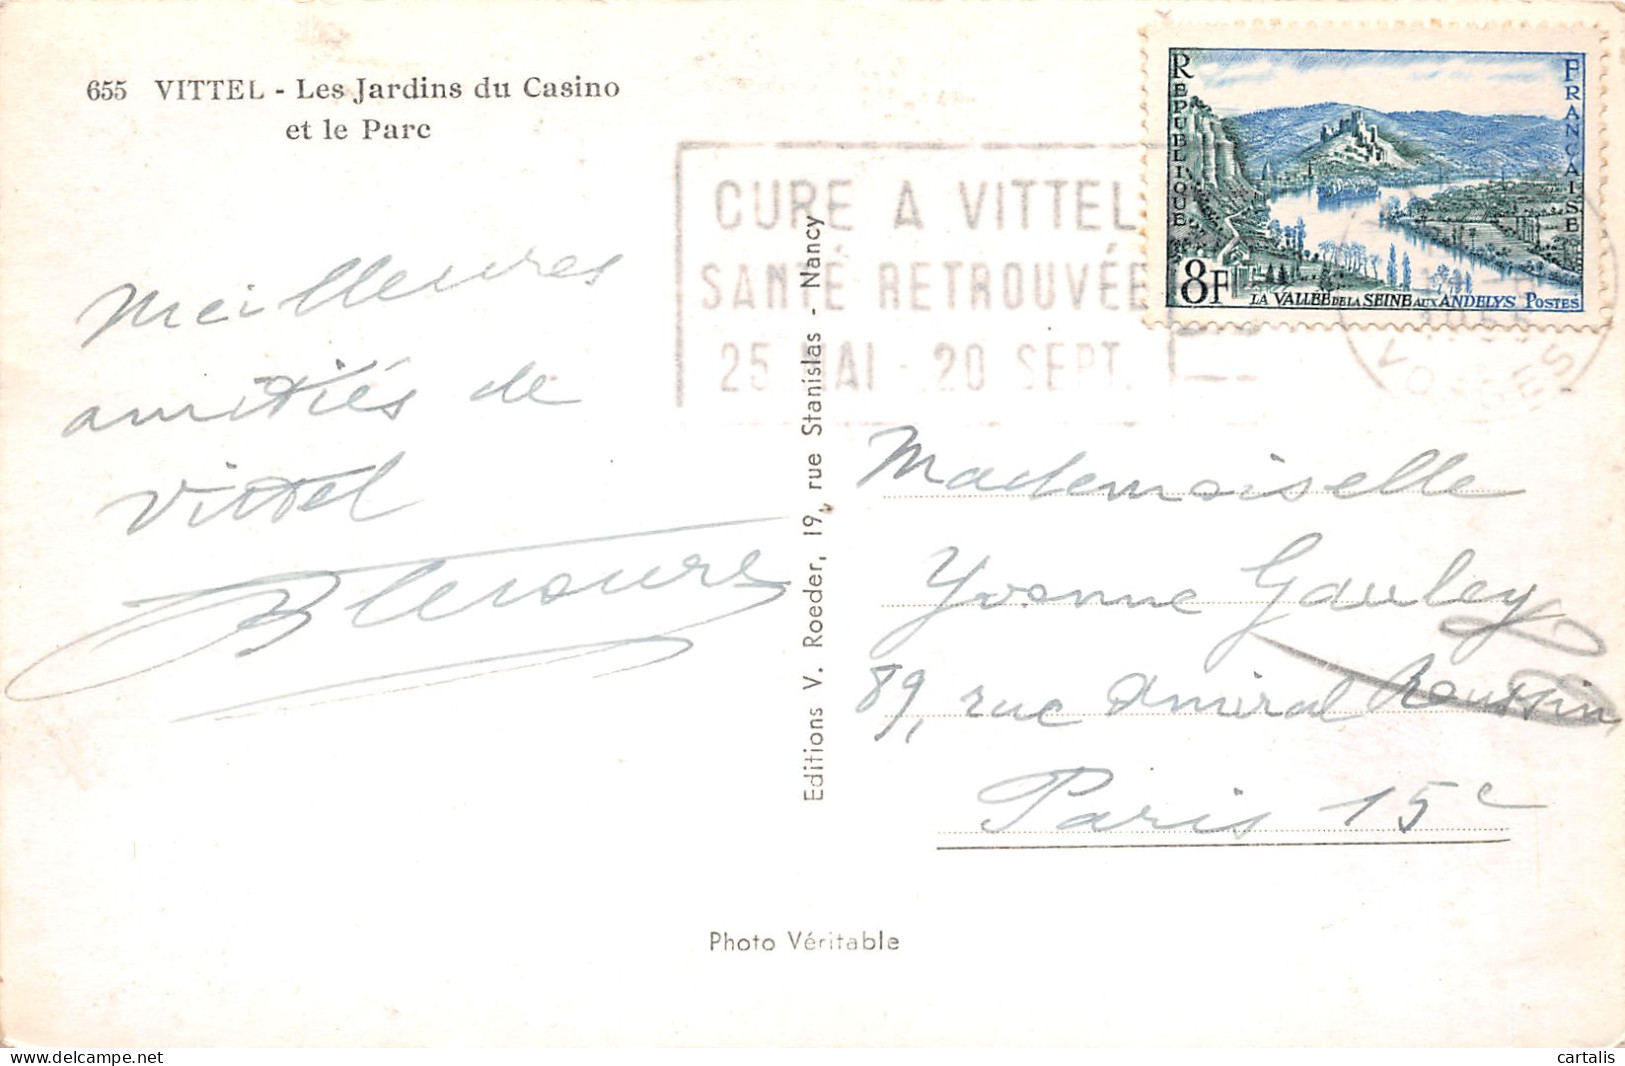 655 VITTEL - Les Jardins du Casino
et le Parc
CURE A VITTEL
SANTÉ RETROUVÉE
25 MAI - 20 SEPT.
RÉPUBLIQUE
FRANÇAISE
8F
LA VALLÉE DE LA SEINE AUX ANDELYS POSTES
1955
VOSGES
Meilleures
amitiés de
Vittel
Editions V. Roeder, 19, rue Stanislas - Nancy
Mademoiselle
Yvonne Gauley
89, rue Amiral Roussin
Paris 15e
Photo Véritable
cartalis